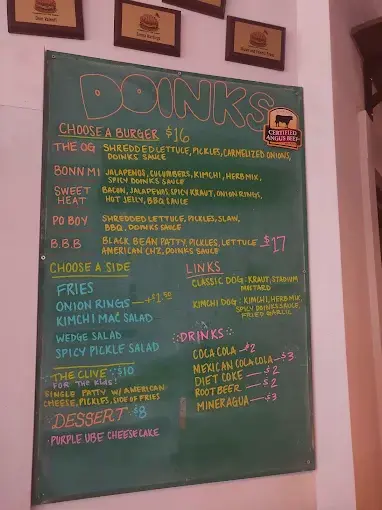 DOINKS
CERTIFIED
ANGUS BEEF
CHOOSE A BURGER $16
THE OG SHREDDED LETTUCE, PICKLES, CARMELIZED ONIONS,
DOINKS SAUCE
BONN MI JALAPENOS, CUCUMBERS, KIMCHI, HERB MIX,
SPICY DOINKS SAUCE
SWEET HEAT BACON, JALAPENOS, SPICY KRAUT, ONION RINGS,
HOT JELLY, BBQ SAUCE
PO BOY SHREDDED LETTUCE, PICKLES, SLAW,
BBQ, DOINKS SAUCE
B.B.B BLACK BEAN PATTY, PICKLES, LETTUCE $17
AMERICAN CHZ, DOINKS SAUCE
CHOOSE A SIDE
FRIES
ONION RINGS
KIMCHI MAC SALAD
WEDGE SALAD
SPICY PICKLE SALAD
LINKS
CLASSIC DOG: KRAUT, STADIUM
MUSTARD
KIMCHI DOG: KIMCHI, HERB MIX,
SPICY DOINKS SAUCE,
FRIED GARLIC
DRINKS
COCA COLA - $2
MEXICAN COCA COLA - $3
DIET COKE - $2
ROOT BEER - $2
MINERAGUA - $3
THE CLIVE $10
FOR THE KIDS!
SINGLE PATTY W/ AMERICAN
CHEESE, PICKLES, SIDE OF FRIES
DESSERT $8
PURPLE UBE CHEESECAKE